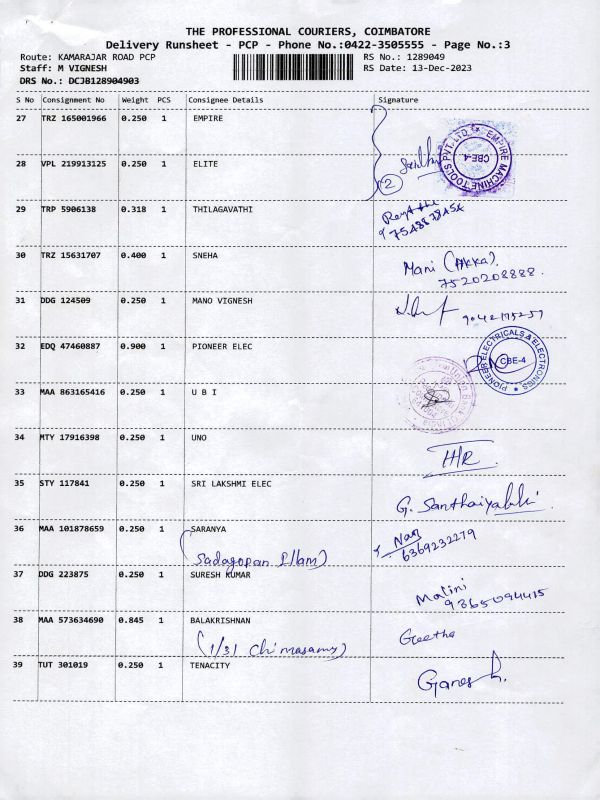 THE PROFESSIONAL COURIERS, COIMBATORE
Delivery Runsheet - PCP - Phone No.:0422-3505555 - Page No.:3
Route: KAMARAJAR ROAD PCP
RS No.: 1289049
Staff: M VIGNESH
RS Date: 13-Dec-2023
DRS No.: DCJB128904903
S No Consignment No Weight PCS Consignee Details Signature
27 TRZ 165001966 0.250 1 EMPIRE
EMPIRE MACHINE TOOLS PVT. LTD.
CBE-4
28 VPL 219913125 0.250 1 ELITE
2
29 TRP 5906138 0.318 1 THILAGAVATHI
30 TRZ 15631707 0.400 1 SNEHA
Mani (Akka).
7520208888.
31 DDG 124509 0.250 1 MANO VIGNESH
32 EDQ 47460887 0.900 1 PIONEER ELEC
PIONEER ELECTRICALS & ELECTRONICS
CBE-4
33 MAA 863165416 0.250 1 U B I
34 MTY 17916398 0.250 1 UNO
35 STY 117841 0.250 1 SRI LAKSHMI ELEC
36 MAA 101878659 0.250 1 SARANYA
(Sadagopan Illam)
6369232279
37 DDG 223875 0.250 1 SURESH KUMAR
Malini
9365094415
38 MAA 573634690 0.845 1 BALAKRISHNAN
Geetha
(1/31 Chinnasamy)
39 TUT 301019 0.250 1 TENACITY
Ganesh.